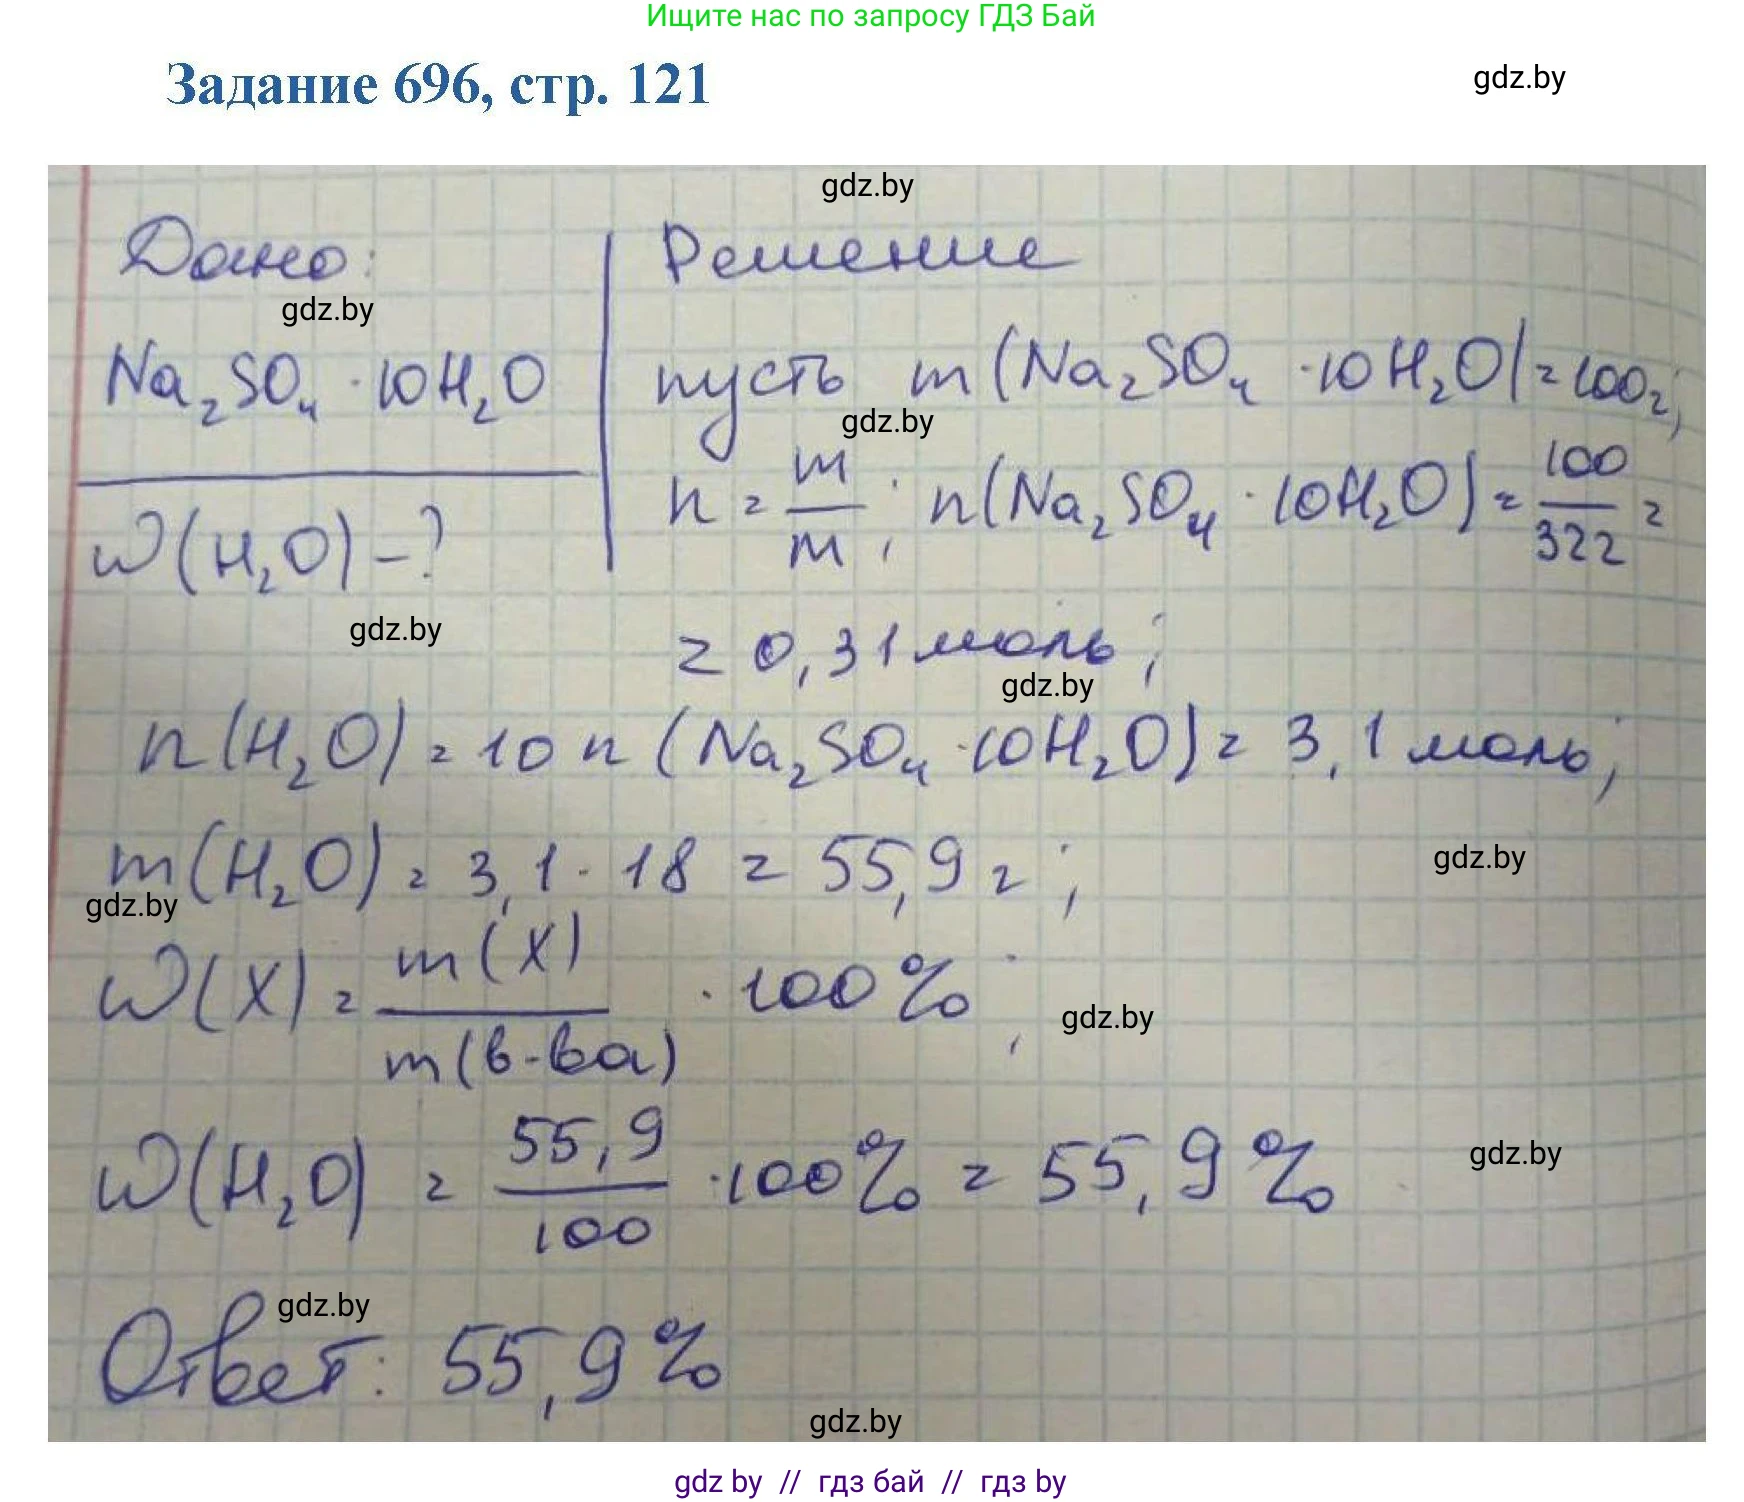 Ищите нас по запросу ГДЗ Бай
Задание 696, стр. 121
gdz.by
gdz.by
Дано:
Решение
gdz.by
Na₂SO₄ · 10H₂O
пусть m(Na₂SO₄ · 10H₂O) = 100г;
gdz.by
n = m/m; n(Na₂SO₄ · 10H₂O) = 100/322 =
W(H₂O) - ?
gdz.by
= 0,31 моль;
gdz.by
n(H₂O) = 10 n (Na₂SO₄ · 10H₂O) = 3,1 моль;
m(H₂O) = 3,1 · 18 = 55,9 г;
gdz.by
gdz.by
W(X) = m(X)/m(в-ва) · 100%;
gdz.by
W(H₂O) = 55,9/100 · 100% = 55,9%
gdz.by
gdz.by
Ответ: 55,9%
gdz.by
gdz by // гдз бай // гдз by